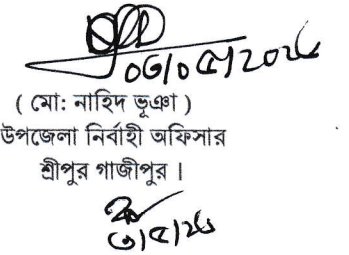 ০৩/০৫/২০২৬
( মো: নাহিদ ভূঞা )
উপজেলা নির্বাহী অফিসার
শ্রীপুর গাজীপুর ।
৩/৫/২৬